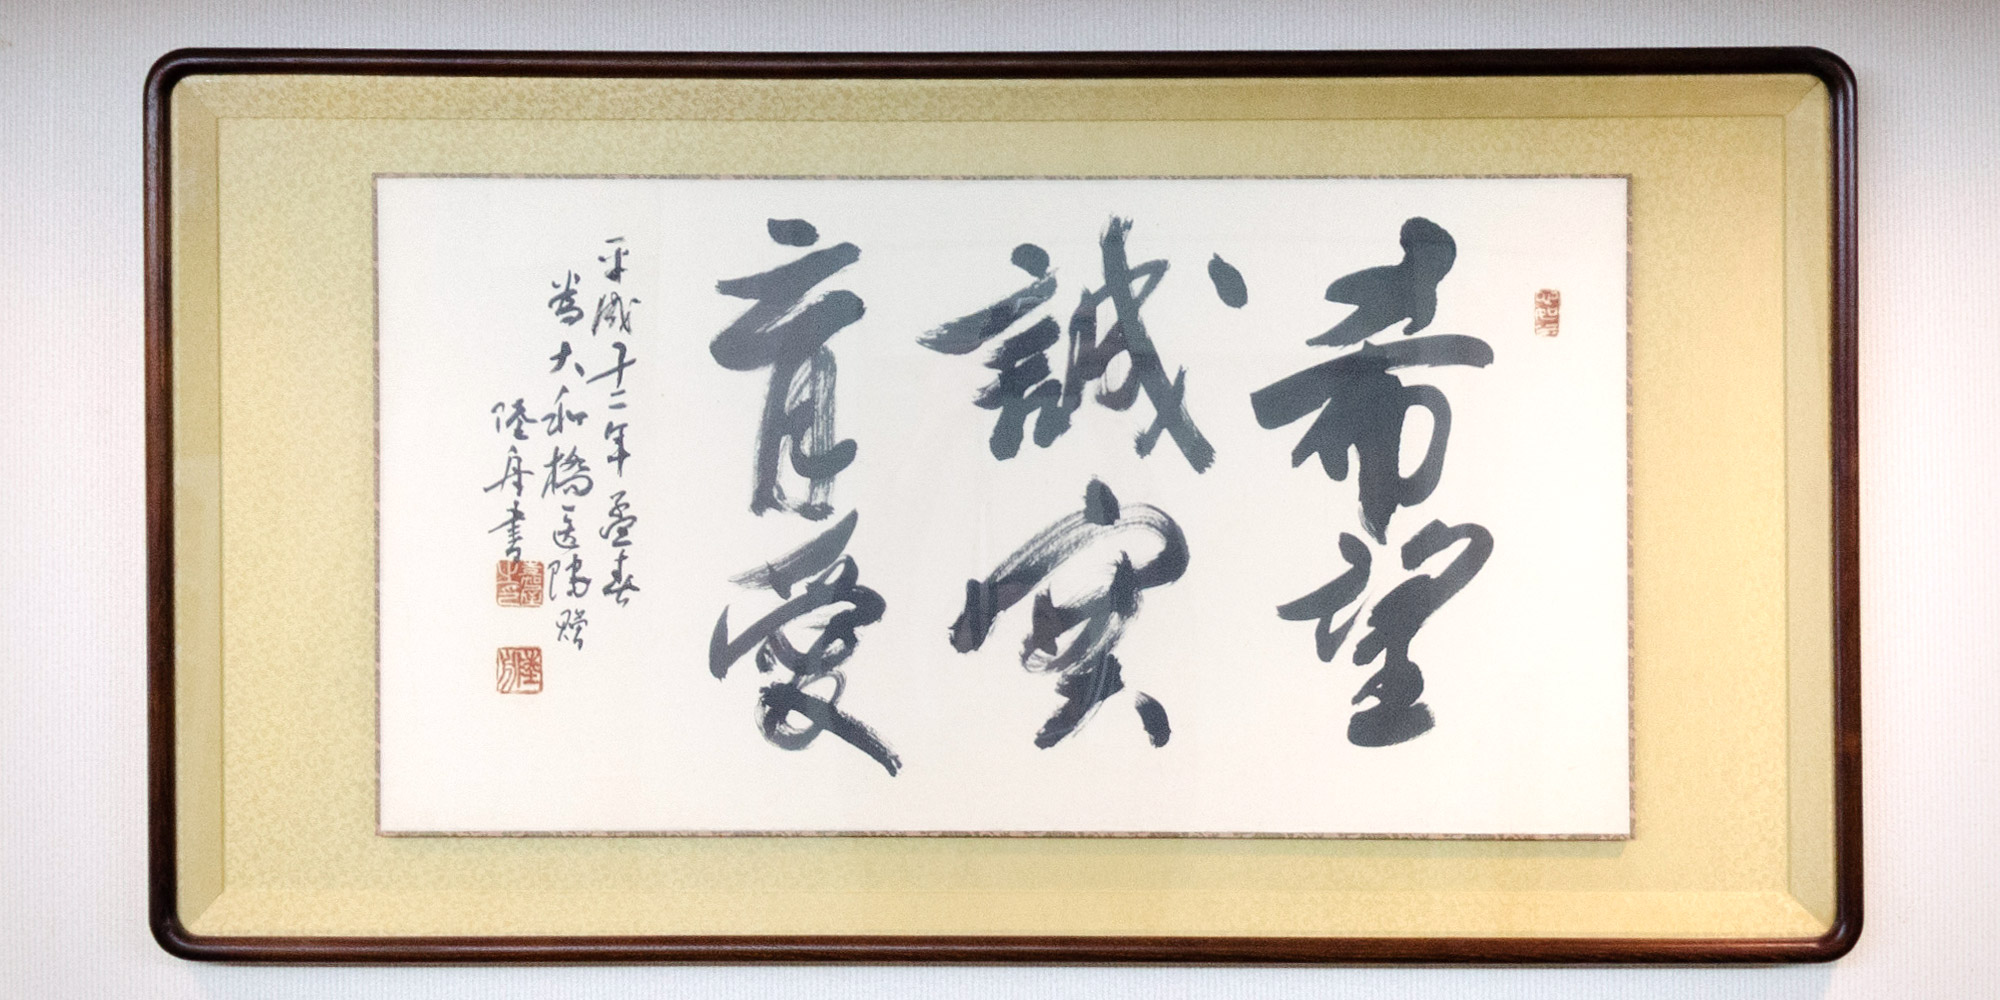 希望
誠実
育愛
平成十二年孟春
為大和橋医院贈
陸舟書